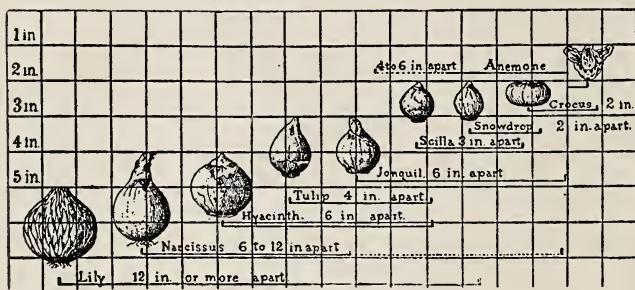 1 in
2 in.
4 to 6 in apart Anemone
3 in.
Crocus 2 in.
Snowdrop 2 in. apart.
4 in.
Scilla 3 in. apart
5 in.
Jonquil. 6 in apart
Tulip 4 in. apart
Hyacinth. 6 in apart.
Narcissus 6 to 12 in apart
Lily 12 in. or more apart